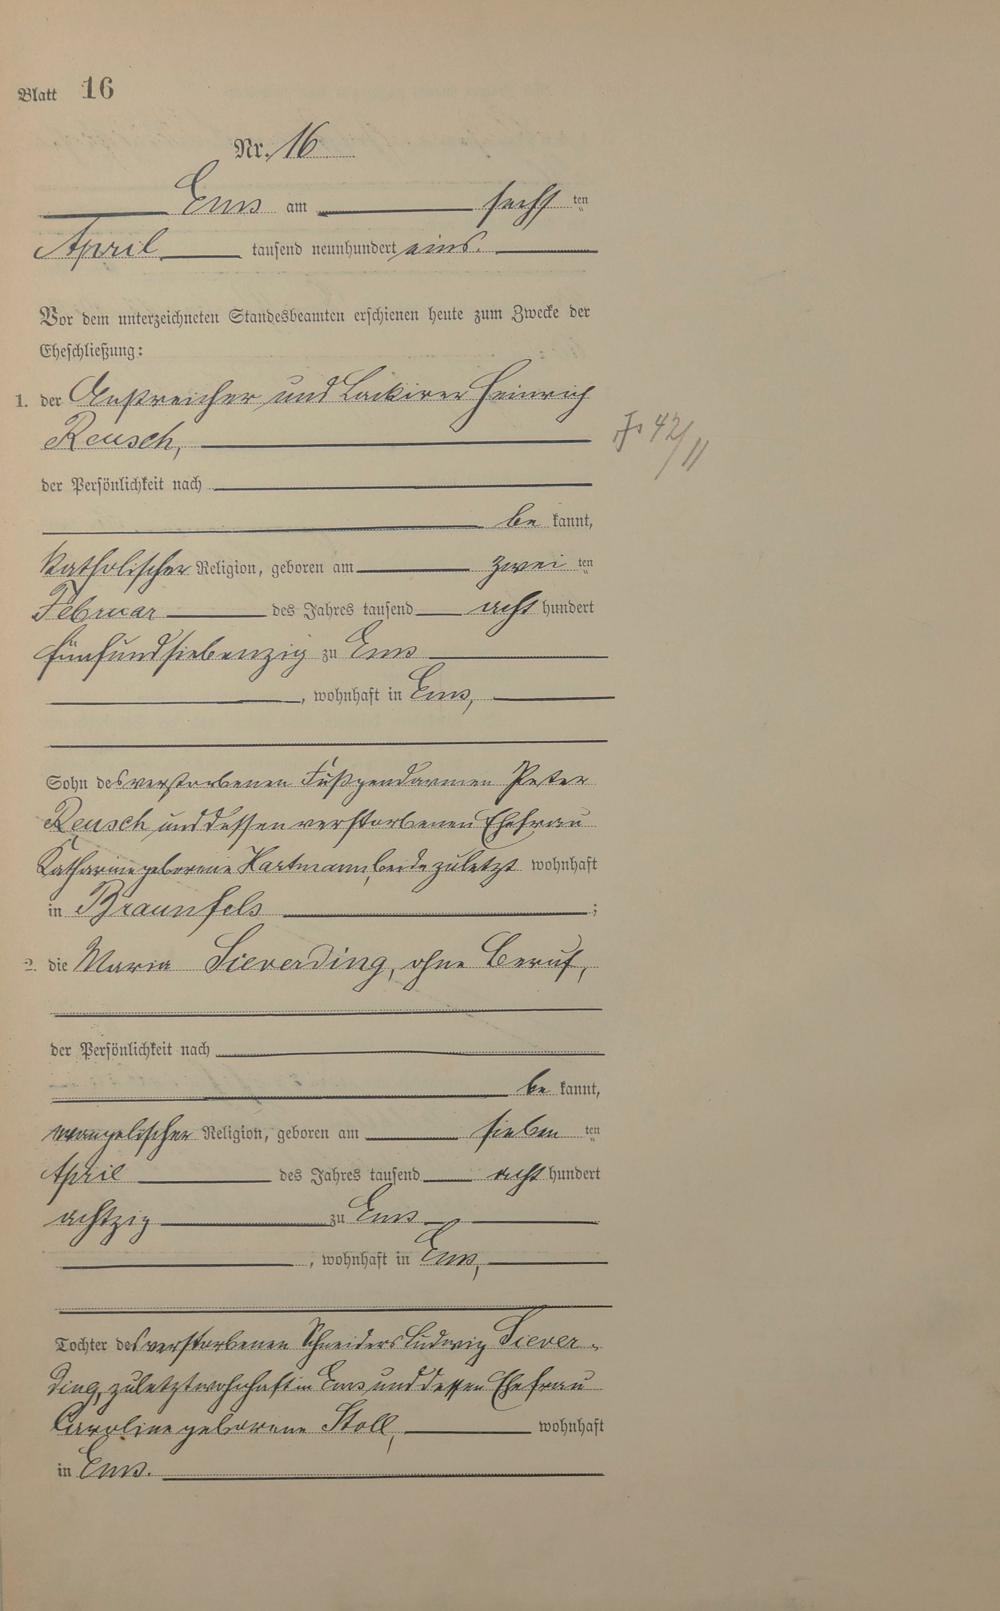 Blatt 16
Nr. 16
Ems am sechs ten
April tausend neunhundert eins.
Vor dem unterzeichneten Standesbeamten erschienen heute zum Zwecke der
Eheschließung:
1. der Anstreicher und Lackirer Heinrich
Reusch,
der Persönlichkeit nach
be kannt,
katholischer Religion, geboren am zwei ten
Februar des Jahres tausend acht hundert
fünfundsiebenzig zu Ems
, wohnhaft in Ems,
Sohn des verstorbenen Fußgendarmen Peter
Reusch und dessen verstorbenen Ehefrau
Katharine geborene Hartmann, beide zuletzt wohnhaft
in Braunfels ;
2. die Maria Sieverding, ohne Beruf,
der Persönlichkeit nach
be kannt,
evangelischer Religion, geboren am sieben ten
April des Jahres tausend acht hundert
achtzig zu Ems
, wohnhaft in Ems,
Tochter des verstorbenen Schneiders Ludwig Siever-
ding, zuletzt wohnhaft in Ems und dessen Ehefrau
Caroline geborene Stoll, wohnhaft
in Ems.
42/11